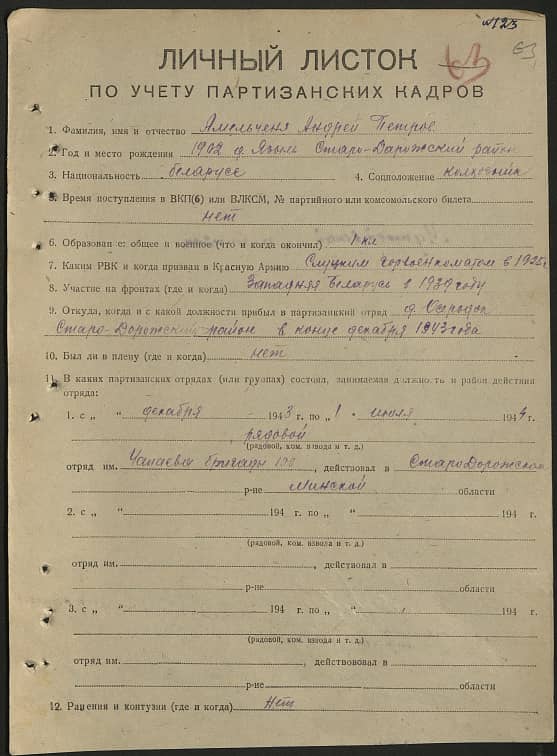 №123
63
63
ЛИЧНЫЙ ЛИСТОК
ПО УЧЕТУ ПАРТИЗАНСКИХ КАДРОВ
1. Фамилия, имя и отчество Амельченя Андрей Петров.
2. Год и место рождения 1902 д. Языль Старо-Дорожский район
3. Национальность беларусс 4. Соцположение колхозник
5. Время поступления в ВКП(б) или ВЛКСМ, № партийного или комсомольского билета
нет
6. Образование: общее и военное (что и когда окончил) 1 кл
7. Каким РВК и когда призван в Красную Армию Слуцким горвоенкоматом в 1925г
8. Участие на фронтах (где и когда) Западняя Беларусь в 1939 году
9. Откуда, когда и с какой должности прибыл в партизанкий отряд д.
Старо-Дорожский район в конце декабря 1943 года
10. Был ли в плену (где и когда) нет
11. В каких партизанских отрядах (или группах) состоял, занимаемая должность и район действия
отряда:
1. с „ “ декабря 1943 г. по „1 “ июля 1944 г.
рядовой
(рядовой, ком. взвода и т. д.)
отряд им. Чапаева бригады 100, действовал в СтароДорожском
р-не Минской области
2. с „ “ 194 г. по „ “ 194 г.
(рядовой, ком. взвола и т. д.)
отряд им. , действовал в
р-не области
3. с „ “ 194 г. по „ “ 194 г.
(рядовой, ком. взвода и т. д.)
отряд им. , действововал в
р-не области
12. Ранения и контузии (где и когда) Нет